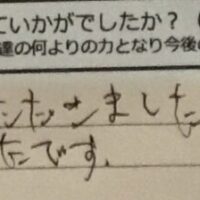 ていかがでしたか？
達の何よりの力となり今後
ました
たです.